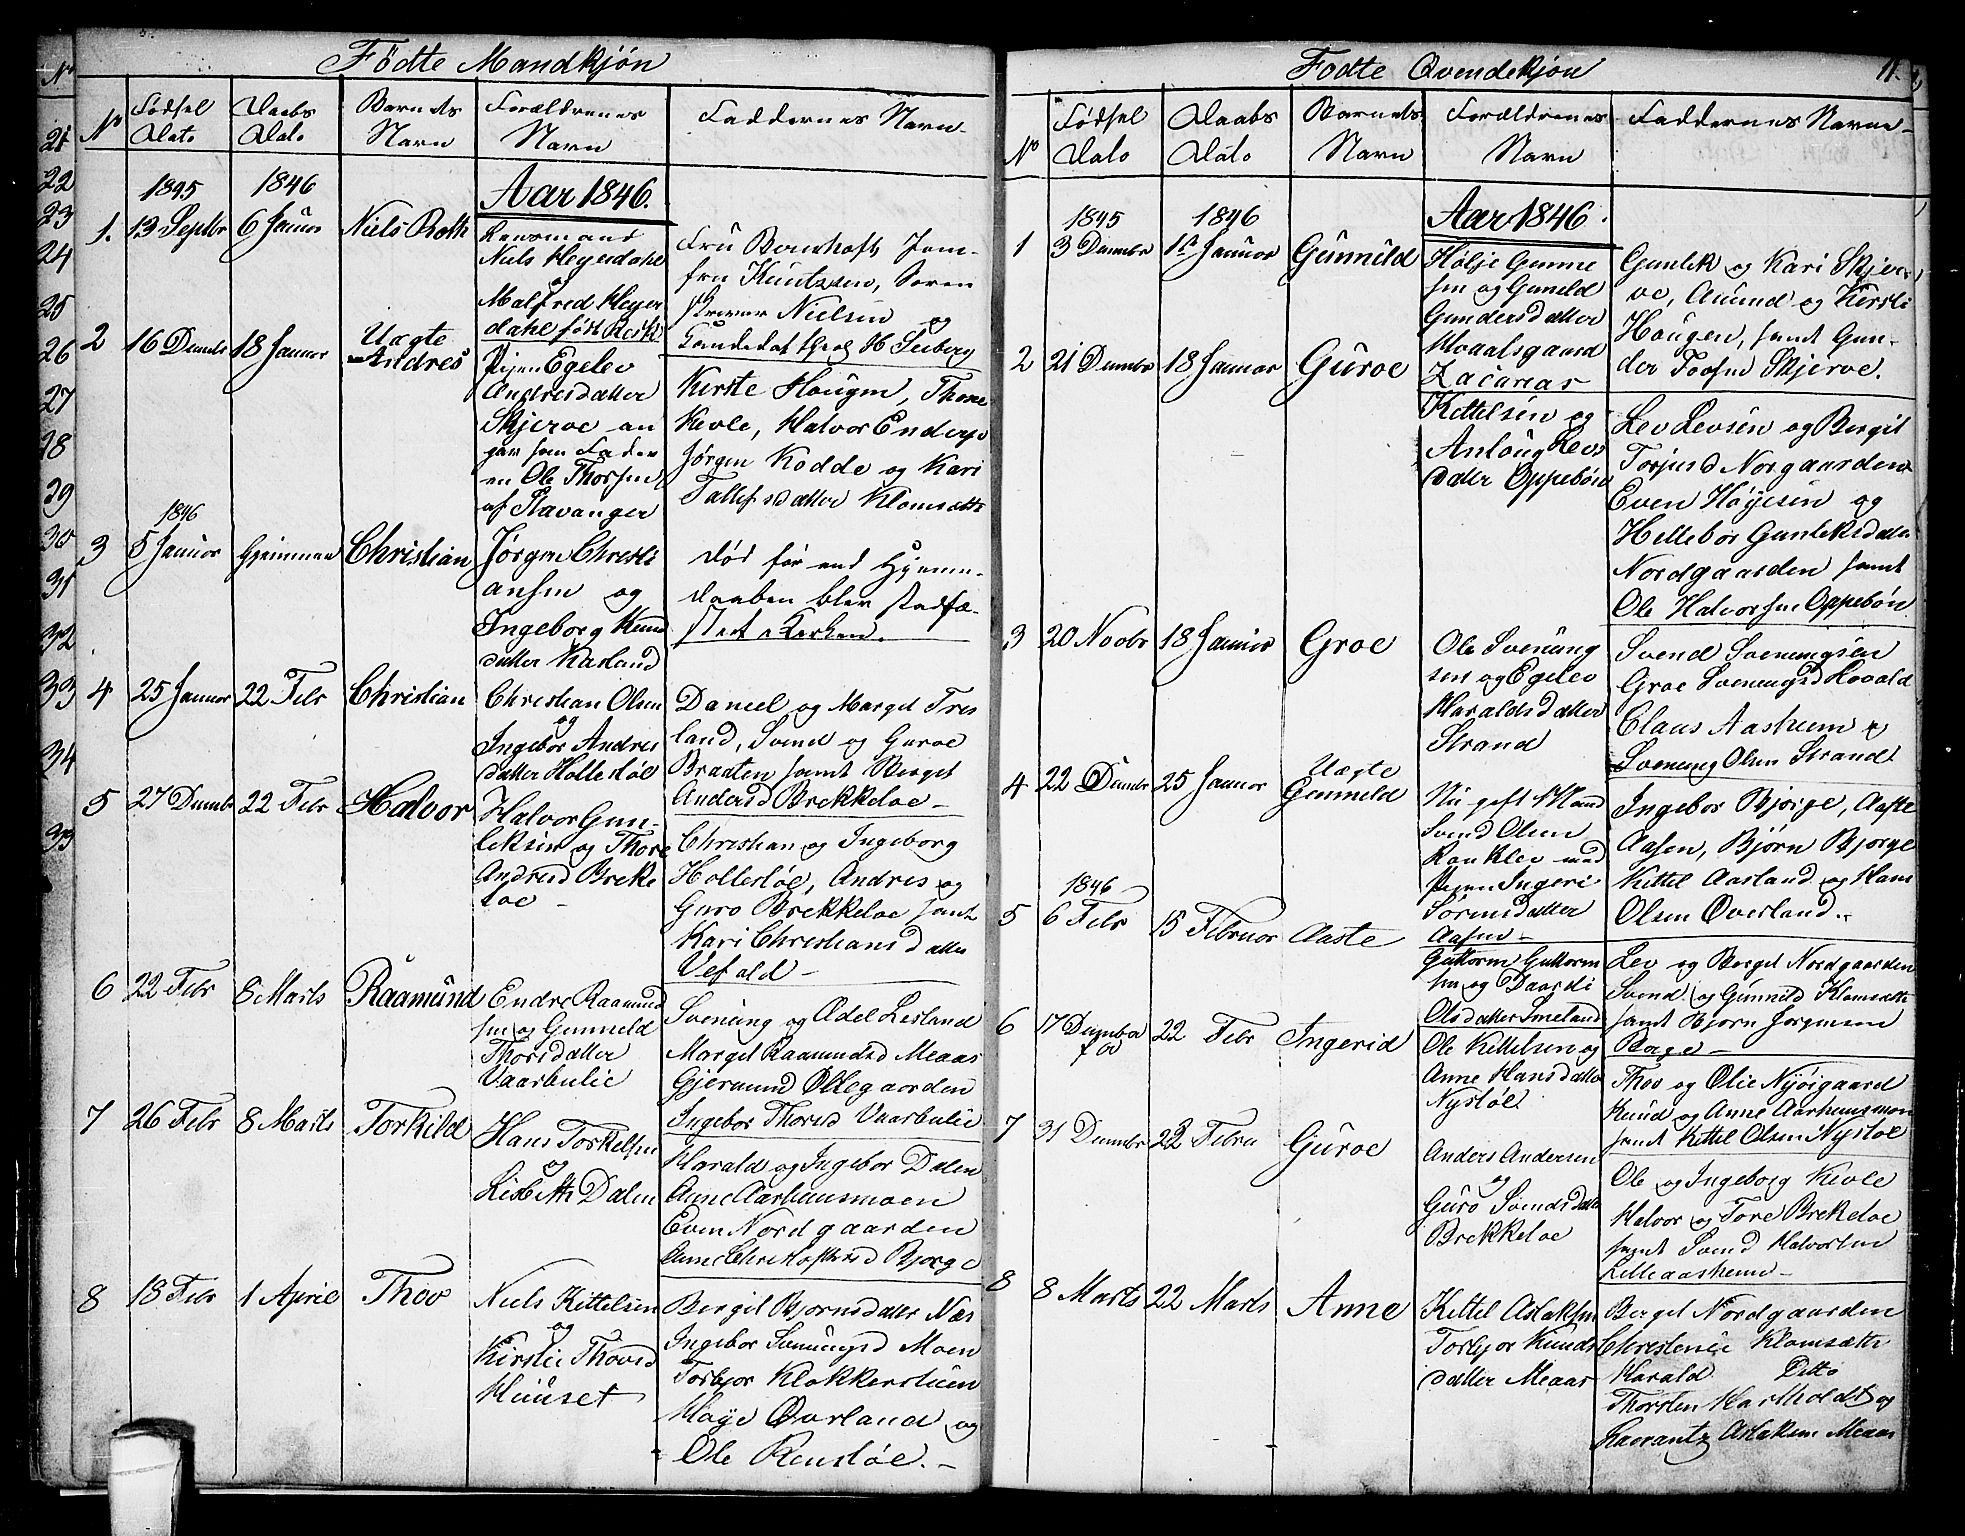 Fødte Mandkjøn
No
Fødsel Dato
Daabs Dato
Barnets Navn
Forældrenes Navn
Faddernes Navn
1845
1846
Aar 1846.
1. 13 Septbr 6 Januar Niels Roth
Lensmand
Niels Heyerdahl
og
Malfred Heyer
dahl født
Fru
fru Kuntzsen, Soren
skriver Nielsen
og
2 16 Decmbr 18 Januar Uægte
Andres
Pigen Egelev
Andresdatter
Skjeroe an
giv som Fader
en Ole Thorsen
af Stavanger
Kerste Hougen, Thone
Kevle, Halvor Enders
Jørgen Kodde og Kari
Tallefsdatter Klomsætt
1846
3 5 Januar Hjemmen Christian
Jørgen Christi
ansen og
Ingeborg Knud
datter Kasland
død før end Hjemme-
daaben blev stadfæ-
stet i Kirken.
4 25 Januar 22 Febr Christian
Christian Olsen
og
Ingebor Andres
datter Hollesløe
Daniel og Margit Tres
land, Svend og Guroe
Braaten samt Berget
Andersd Brekkeloe
5 27 Decmbr 22 Febr Halvor
Halvor Gun-
leksen og Thore
Andresd Breke
loe
Christian og Ingeborg
Hollesløe, Andres og
Guro Brekkeloe samt
Kari Christiansdatter
Vefald
6 22 Febr 8 Marts Raamund
Endre Raamund
sen og Gunneld
Thorsdatter
Vaarbulie
Svenung og Adel Lesland
Margit Raamundsd Meaas
Gjermund Ollegaarden
Ingebor Thorsd Vaarbulie
7 26 Febr 8 Marts Torkild
Hans Torkelsen
og
Lisbeth Dalen
Harald og Ingebor Dalen
Anne Aarhuusmoen
Even Nordgaarden
Anne Christoffersd Bjorge
8 18 Febr 1 April Thov
Niels Kittelsen
og
Kirstie Thovsd
Huuset
Bergit Bjornsdatter Næs
Ingebor Svenungsd Moen
Torbjor Klokkerstuen
Høye Overland og
Ole Rensløe.
Fodte Qvendekjøn
11.
No
Fødsel Dato
Daabs Dato
Barnets Navn
Forældrenes Navn
Faddernes Navne
1845
1846
Aar 1846.
1 3 Decmbr 1 Januar Gunnild
Hølje Gunne
sen og Guneld
Gundersdatter
Moaalsgaard
Gunlek og Kari Skjer-
oe, Amund og Kersti
Hougen, samt Gun-
der Toosen Skjeroe.
2 21 Decmbr 18 Januar Guroe
Zacarias
Kettelsen og
Anloug Levs
datter Oppebøn
Lev Levsen og Bergit
Torjusd Norgaarden
Even Høyesen og
Hellebor Gunleksdatter
Nordgaarden samt
Ole Halvorsen Oppebøn
3 20 Novbr 18 Januar Groe
Ole Svenung
sen og Egelev
Haraldsdatter
Strand
Svend Svenungsen
Groe Svenungsd Hovald
Claus Aasheim og
Svenung Olsen Strand
4 22 Decmbr 25 Januar Uægte
Gunneld
Nu gift Mand
Svend Olsen
Rauklev med
Pigen Ingeri
Sørensdatter
Aasen
Ingebor Bjorge, Aaste
Aasen, Bjørn Bjorge
Kittel Aasland og Hans
Olsen Overland.
1846
5 6 Febr 15 Februar Aaste
Guttorm Guttorm
sen og Daardi
Olsdatter Smeland
Lev og Bergit Nordgaarden
Svend og Gunnild Klomsætt
samt Bjorn Jorgensen
Borge
6 17 Decmbr 22 Febr Ingerid
Ole Kittelsen og
Anne Hansdatter
Nysløe
Thov og Olie Nyøigaard
Knud og Anne Aarhuusmoen
samt Kittel Olsen Nysloe
7 31 Decmbr 22 Febru Guroe
Anders Andersen
og
Guro Svendsdatter
Brekkeloe
Ole og Ingeborg Kevle
Halvor og Tore Brekeloe
samt Svend Halvorsen
Lilleaasheim
8 8 Marts 22 Marts Anne
Kettel Aslaksen
Torbjor Knuds
datter Meaas
Berget Nordgaarden
Christenie Klomsætt
Harald Ditto
Thorsten Harthold og
Laurantz Aslaksen Meaas